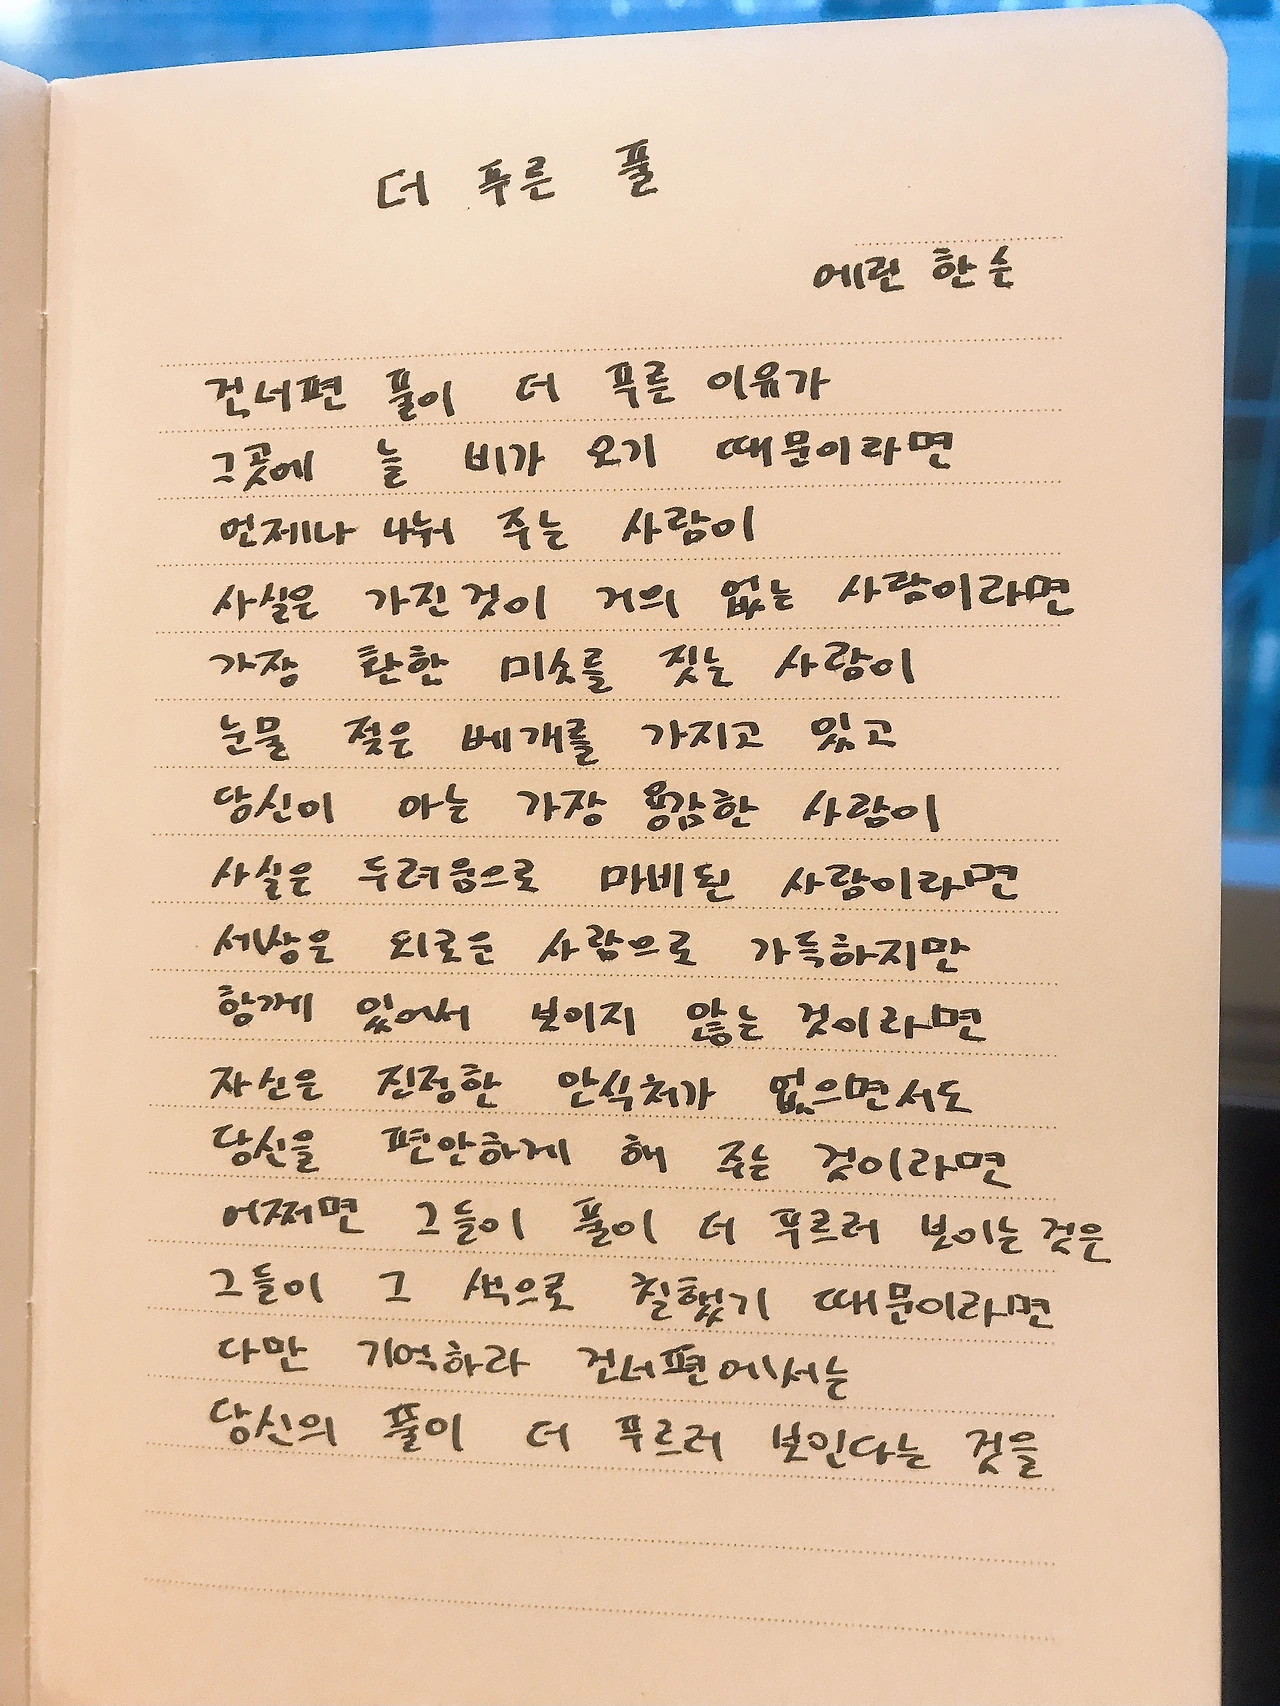 더 푸른 풀
에린 한슨
건너편 풀이 더 푸른 이유가
그곳에 늘 비가 오기 때문이라면
언제나 나눠 주는 사람이
사실은 가진것이 거의 없는 사람이라면
가장 환한 미소를 짓는 사람이
눈물 젖은 베개를 가지고 있고
당신이 아는 가장 용감한 사람이
사실은 두려움으로 마비된 사람이라면
세상은 외로운 사람으로 가득하지만
함께 있어서 보이지 않는 것이라면
자신은 진정한 안식처가 없으면서도
당신을 편안하게 해 주는 것이라면
어쩌면 그들이 풀이 더 푸르러 보이는 것은
그들이 그 색으로 칠했기 때문이라면
다만 기억하라 건너편에서는
당신의 풀이 더 푸르러 보인다는 것을